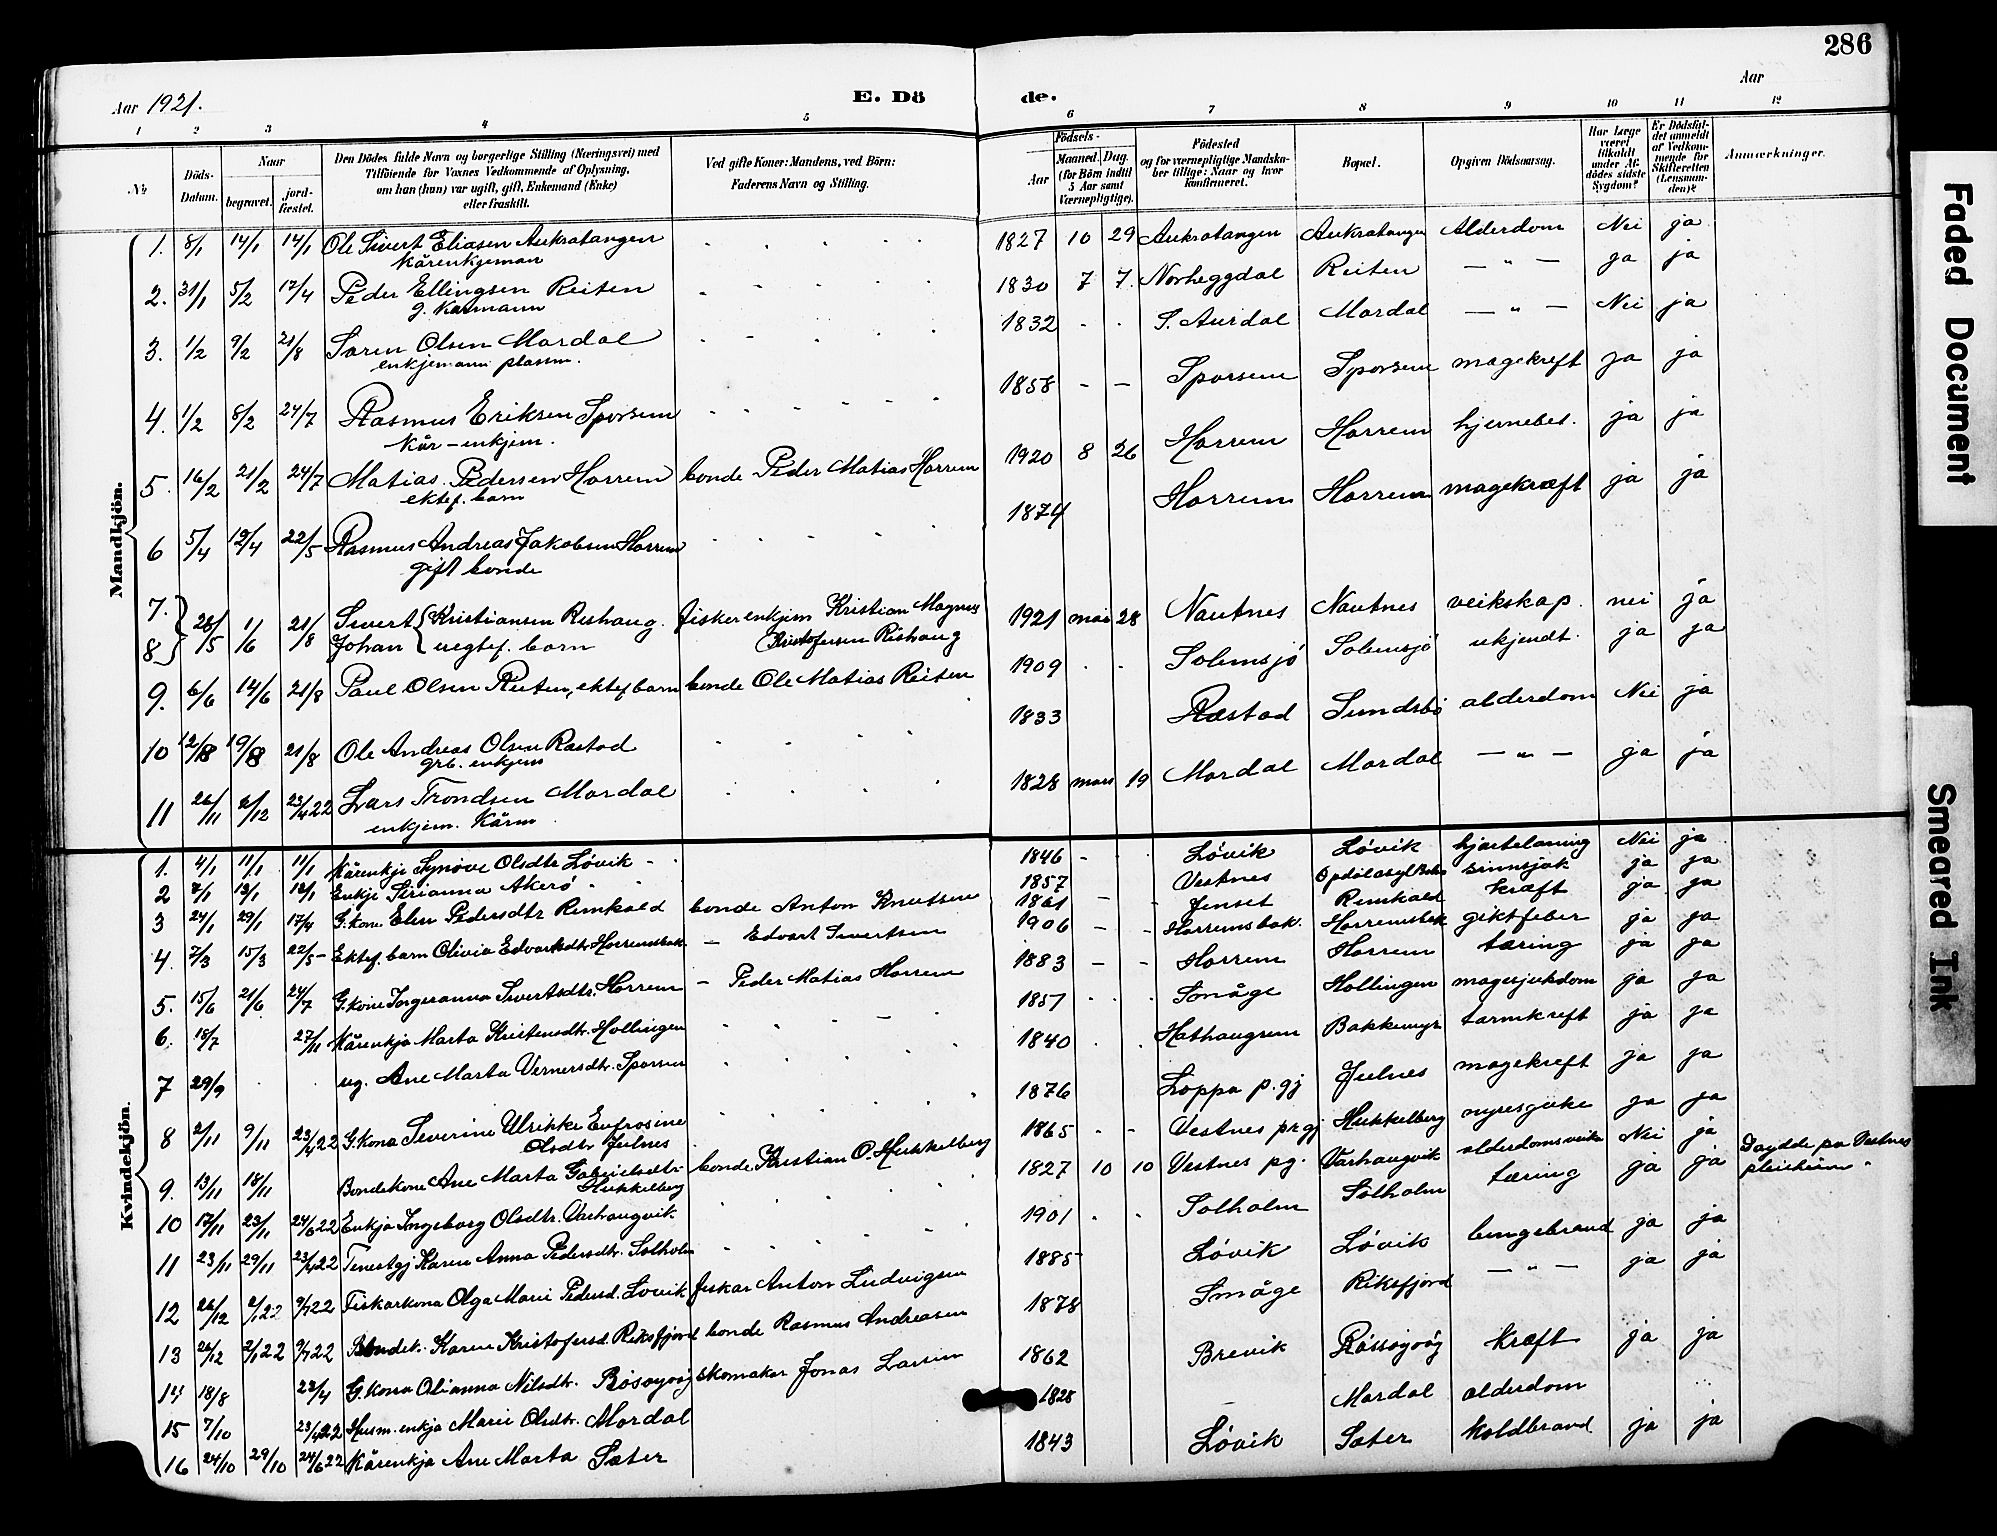 286
Aar 1921.
E. Dö de.
Aar
1 2 3 4 5 6 7 8 9 10 11 12
No
Döds-Datum.
Naar begravet. jord-fæstet.
Den Dödes fulde Navn og borgerlige Stilling (Næringsvei) med Tilföiende for Voxnes Vedkommende af Oplysning, om han (hun) var ugift, gift, Enkemand (Enke) eller fraskilt.
Ved gifte Koner: Mandens, ved Börn: Faderens Navn og Stilling.
Födsels- Aar Maaned. Dag. (for Börn indtil 5 Aar samt Værnepligtige).
Födested og for værnepligtige Mandskaber tillige: Naar og hvor konfirmeret.
Bopæl.
Opgiven Dödsaarsag.
Har Læge været tilkaldt under Afdödes sidste Sygdom?
Er Dödsfaldet anmeldt af Vedkommende for Skifteretten (Lensmanden)?
Anmærkninger.
Mandkjön.
1. 8/1 14/1 14/1 Ole Sivert Eliasen Aukratangen 1827 10 29 Aukratangen Aukratangen Alderdom Nei ja
Kårenkjeman
2. 31/1 5/2 17/4 Peder Ellingsen Reiten 1830 7 7. Norheggdal Reiten — " — ja ja
g. Kårmann
3. 1/2 9/2 21/8 Søren Olsen Mordal 1832 S. Aurdal Mordal — " — Nei ja
enkjemann plassm.
4. 1/2 8/2 24/7 Rasmus Eriksen Sporsem 1858 - — Sporsem Sporsem magekreft ja ja
Kår-enkjem.
5. 16/2 21/2 24/7 Matias Pedersen Horrem bonde Peder Matias Horrem 1920 8 26 Horrem Horrem hjernebet. ja ja
ektef. barn
6 5/4 12/4 22/5 Rasmus Andreas Jakobsen Horrem 1874 Horrem Horrem magekræft ja ja
gift bonde
7. 8 28/5 1/6 21/8 Sivert Kristiansen Rishaug. fisker enkjem Kristian Magnus 1921 mai 28 Nautnes Nautnes veikskap. nei ja
Johan uegtef. barn Kristofersen Rishaug
9. 6/6 14/6 21/8 Paul Olsen Reiten, ektef barn bonde Ole Matias Reiten 1909 Solemsjö Solemsjö ukjendt. ja ja
10 12/8 19/8 21/8 Ole Andreas Olsen Ræstad 1833 Ræstad Sundsbö alderdom Nei ja
grb. enkjem
11 26/11 2/12 23/4 22 Lars Trondsen Mordal 1828 mars 19 Mordal Mordal — " — ja ja
enkjem. Kårm
Kvindekjön.
1. 4/1 11/1 11/1 Kårenkje Synöve Olsdtr Lövik 1846 Lövik Lövik hjertelaming Nei ja
2 7/1 13/1 13/1 Enkje Serianna Akerö 1857 Vestnes Opdöl asyl sinnsjuk ja ja
3 24/1 29/1 17/4 G. kone Elen Pedersdtr Remkald bonde Anton Knutsen 1861 Jenset Remkald kræft ja ja
4. 7/3 15/3 22/5 - Ektef. barn Olivia Edvartsdtr Horremsbak — Edvart Sivertsen 1906 Horremsbak. Horremsbak giktfeber ja ja
5. 15/6 21/6 24/7 G. kone Ingeranna Sivertsdtr. Horrem — Peder Matias Horrem 1883 Horrem Horrem tæring ja ja
6. 18/7 27/11 Kårenkja Marta Kristensdtr. Hollingen 1851 Småge Hollingen magesjukdom ja ja
7 29/9 ug. Ane Marta Vernersdtr. Sporsem 1840 Hathaugrem Bakkemyr tarmkreft ja ja
8 2/11 9/11 23/4 22 G. kona Severine Ulrikke Eufrosine 1876 Loppa p.gj Julnes magekreft ja ja
Olsdtr Julnes
9. 13/11 18/11 Bondekone Ane Marta Gabrielsdtr. bonde Kristian O. Hukkelberg 1865 Vestnes prgj Hukkelberg nyresjuke ja ja
Hukkelberg
10 17/11 23/11 24/6 22 Enkja Ingeborg Olsdtr. Varhaugvik 1827 10 10 Vestnes pg. Varhaugvik alderdomsveik Nei ja Døydde på Vestnes
pleieheim
11 23/11 29/11 23/4 22 Tenestgj Karen Anna Pedersdtr. Solholm 1901 Solholm Solholm tæring ja ja
12 26/12 2/1 22 9/7 22 Fiskarkona Olga Marie Pedersd. Lövik fiskar Anton Ludvigsen 1885 Lövik Lövik lungebrand ja ja
13 26/12 2/1 22 9/7 22 Bondek. Karen Kristofersd. Riksfjord bonde Rasmus Andreasen 1878 Småge Riksfjord — " — ja ja
14 18/8 23/4 G. kona Olianna Nilsdtr. Rösogvög skomakar Jonas Larsen 1862 Brevik Rössogvög kræft ja ja
15 7/10 23/4 22 Husm. enkja Marie Olsdtr. Mordal 1828 — Mordal alderdom
16 24/10 29/10 24/6 22 Kårenkja Ane Marta Sæter 1843 Lövik Sæter koldbrand ja ja
Faded Document
Smeared Ink